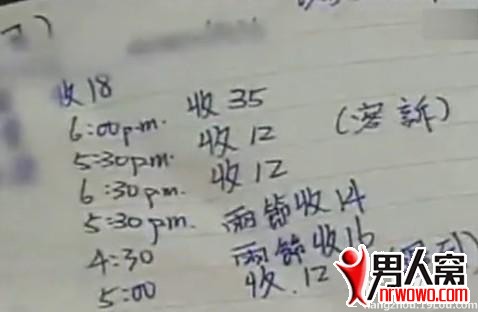 收18
6:00p.m. 收35
5:30pm. 收12 (客訴)
6:30pm. 收12
5:30pm. 兩節收14
4:30 兩節收16
5:00 收.12
男人窝
nrwowo.com